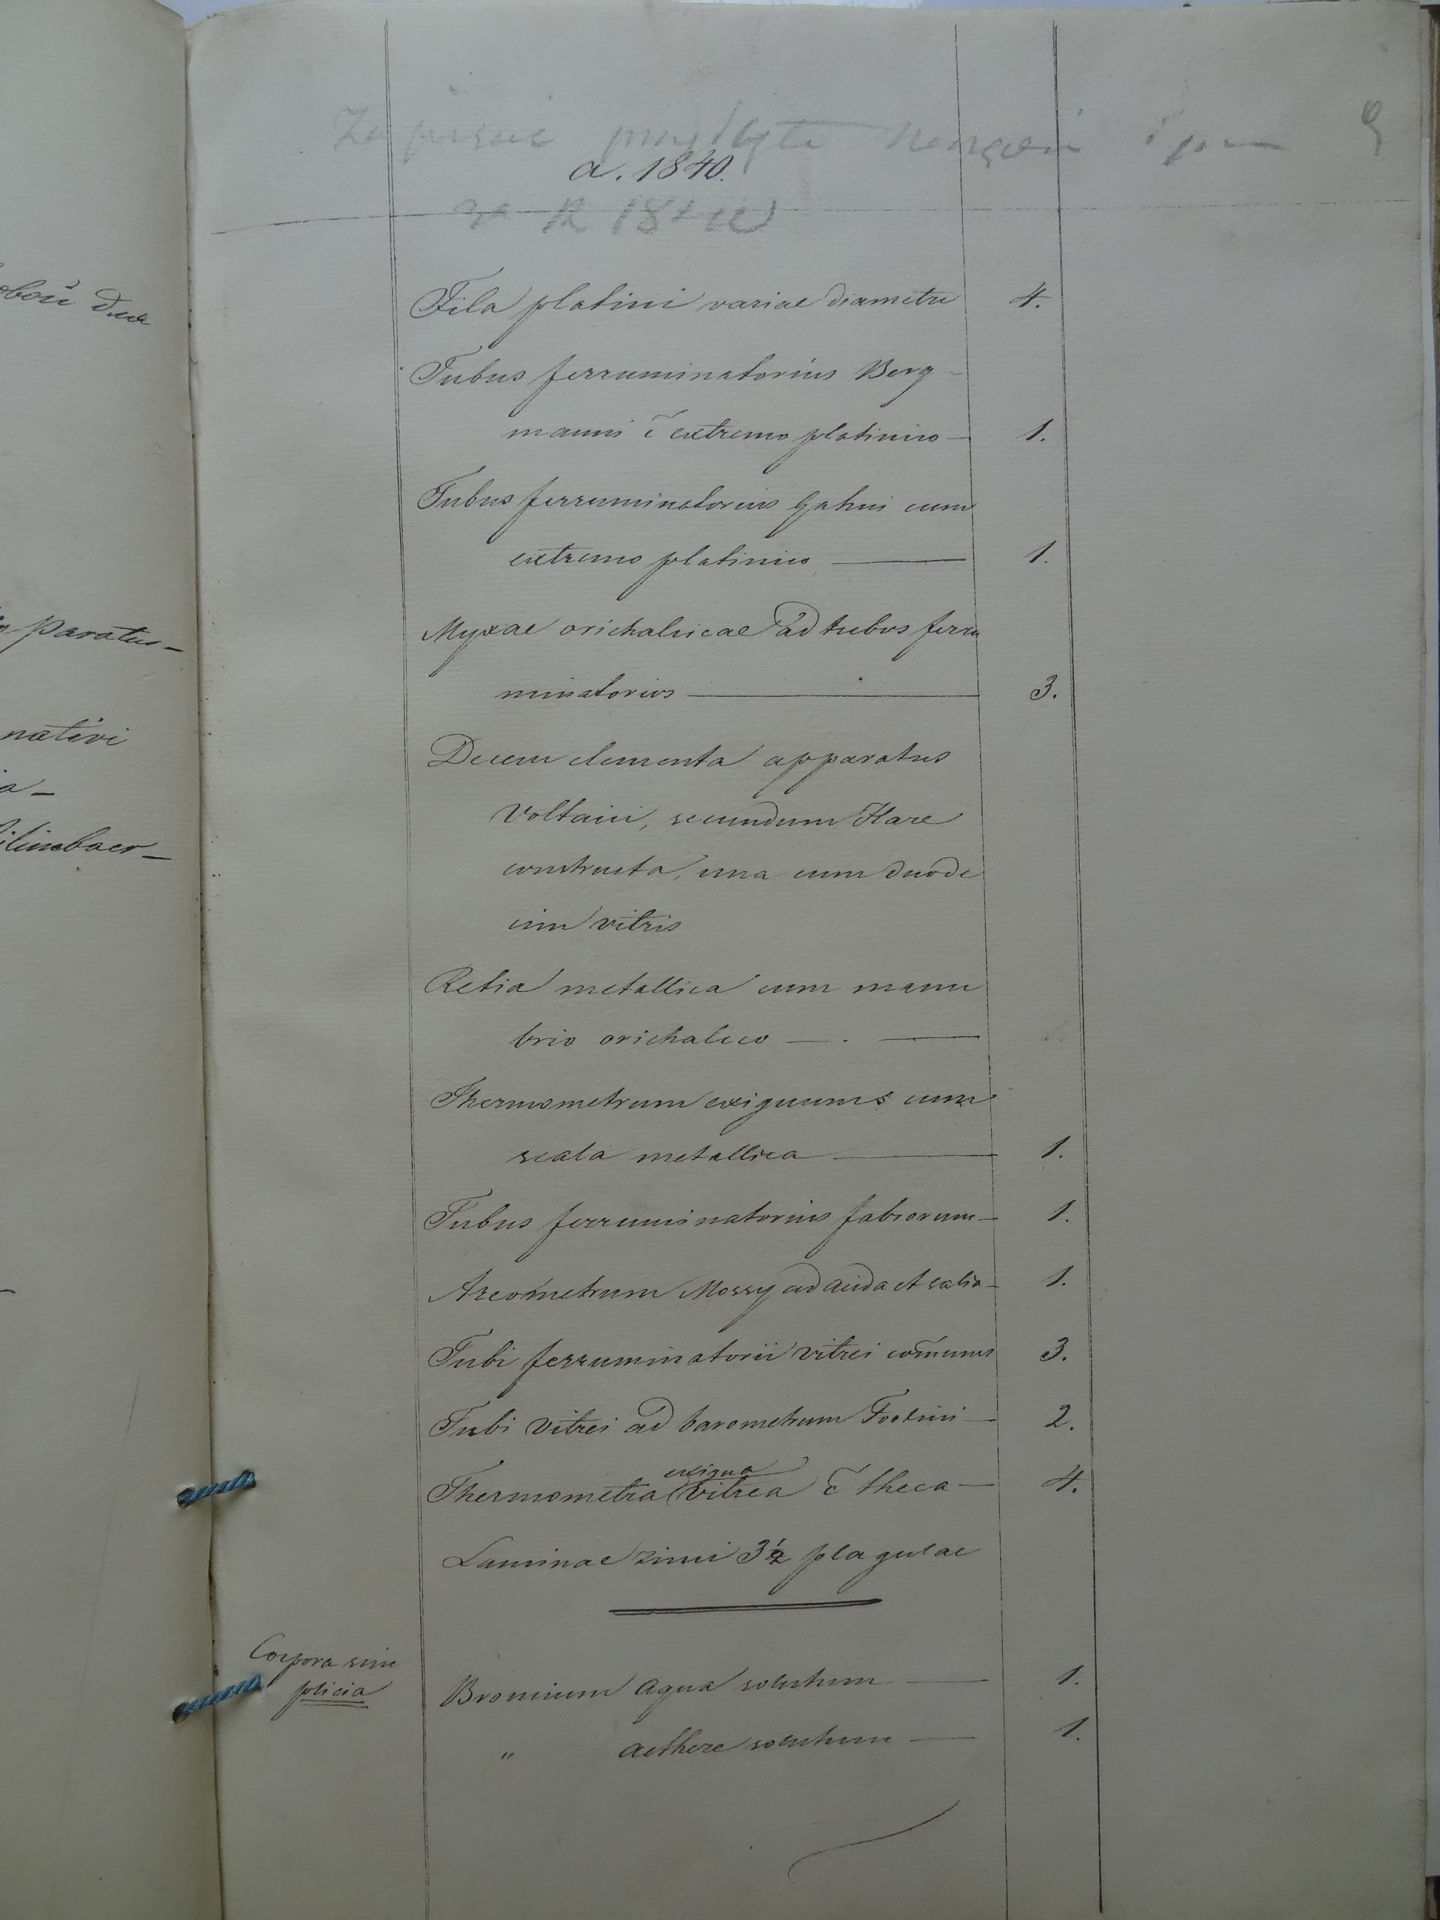 a. 1840.
Fila platini variae diametri 4.
Tubus ferruminatorius Berg-
manni c̄ extremo platinico — 1.
Tubus ferruminatorius Gahni cum
extremo platinico — 1.
Myxae orichalcicae ad tubos ferru
minatorios — 3.
Decem elementa apparatus
Voltaici, secundum Hare
constructa, una cum duode
cim vitris
Retia metallica cum manu
brio orichalceo —
Thermometrum exiguum cum
scala metallica — 1.
Tubus ferruminatorius fabrorum — 1.
Areometrum Mossy ad acida et salia — 1.
Tubi ferruminatorii vitrei com̄unes 3.
Tubi vitrei ad barometrum Fortini — 2.
exigua
Thermometra vitrea c̄ theca — 4.
Laminae zinci 3½ plagulae
Corpora sim
plicia
Bromium aqua solutum — 1.
" aethere solutum — 1.
paratus —
nativi